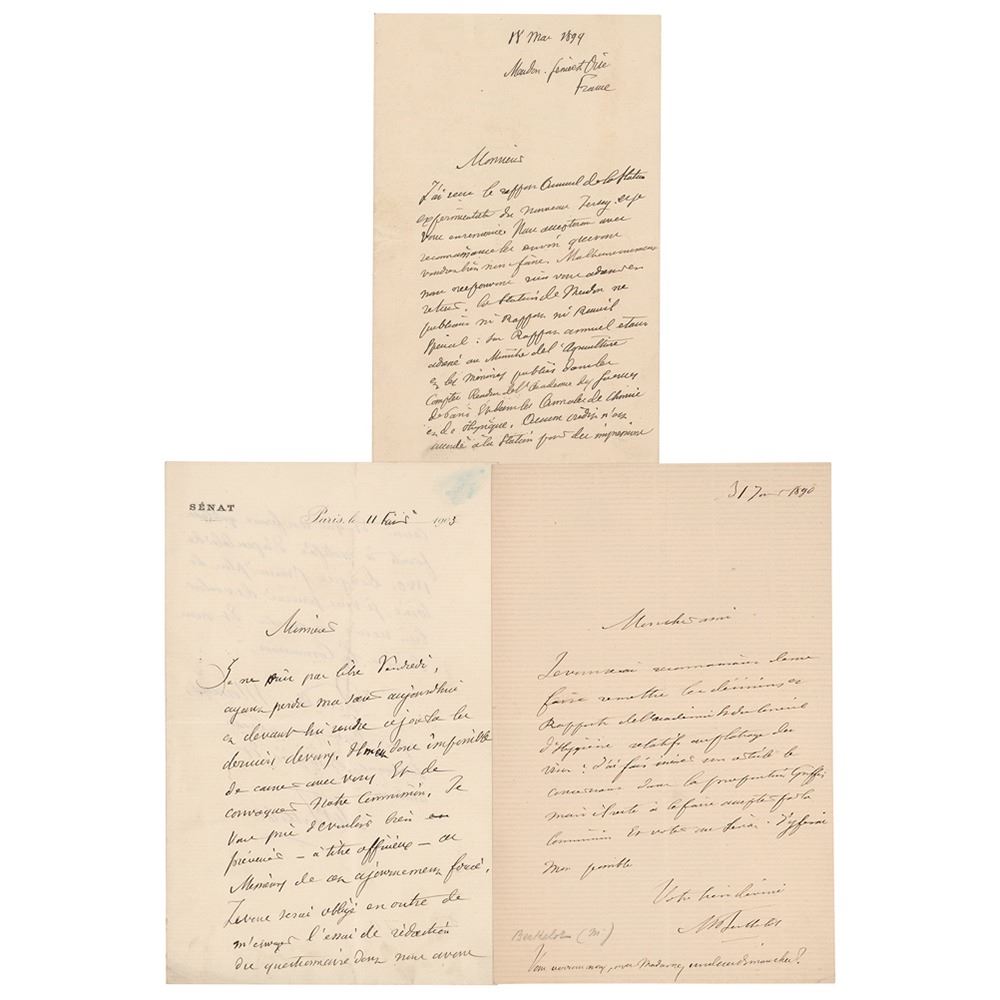 18 Mai 1894
Meudon. Seine et Oise
France
Monsieur
J'ai reçu le rapport Annuel de la Station
expérimentale du Nouveau Jersey et je
vous en remercie. Nous accepterons avec
reconnaissance les envois que vous
voudrez bien nous faire. Malheureusement
nous ne pouvons rien vous adresser en
retour. La Station de Meudon ne
publiant ni Rapport ni Recueil
spécial: son Rapport annuel étant
adressé au Ministre de l'Agriculture
et les Mémoires publiés dans les
Comptes Rendus de l'Académie des Sciences
de Paris Et dans les Annales de Chimie
et de Physique. Aucun crédit n'est
accordé à la Station pour des impressions
SÉNAT
Paris, le 11 1903
Monsieur
Je ne puis pas être Vendredi,
ayant perdu ma sœur aujourd'hui
et devant lui rendre ce jour là les
derniers devoirs. Il m'est donc impossible
de causer avec vous Et de
convoquer Notre Commission. Je
Vous prie de vouloir bien en
prévenir – à titre officieux – ces
Messieurs de cet ajournement forcé.
Je vous serai obligé en outre de
m'envoyer l'essai de rédaction
du questionnaire dont nous avons
31 1890
Mon cher ami
Je vous serai reconnaissant de me
faire remettre les décisions et
Rapports de l'académie et du Conseil
d'Hygiène relatifs au plâtrage des
vins: J'ai fait insérer un article le
concernant dans la proposition Griffe
mais il reste à la faire accepter par la
Commission Et voter au Sénat. J'y ferai
Mon possible
Votre bien dévoué
M Berthelot
Berthelot (M.)